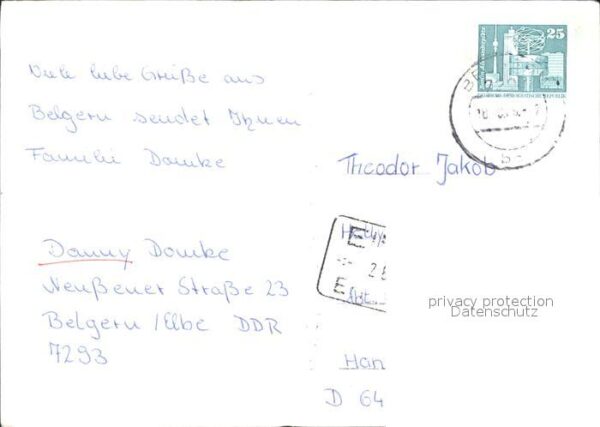 Viele liebe Grüße aus
Belgern sendet Ihnen
Familie Domke
Danny Domke
Neußener Straße 23
Belgern/Elbe DDR
7293
25
Theodor Jakob
E
28
E
Abt.
Han
D 64
privacy protection
Datenschutz